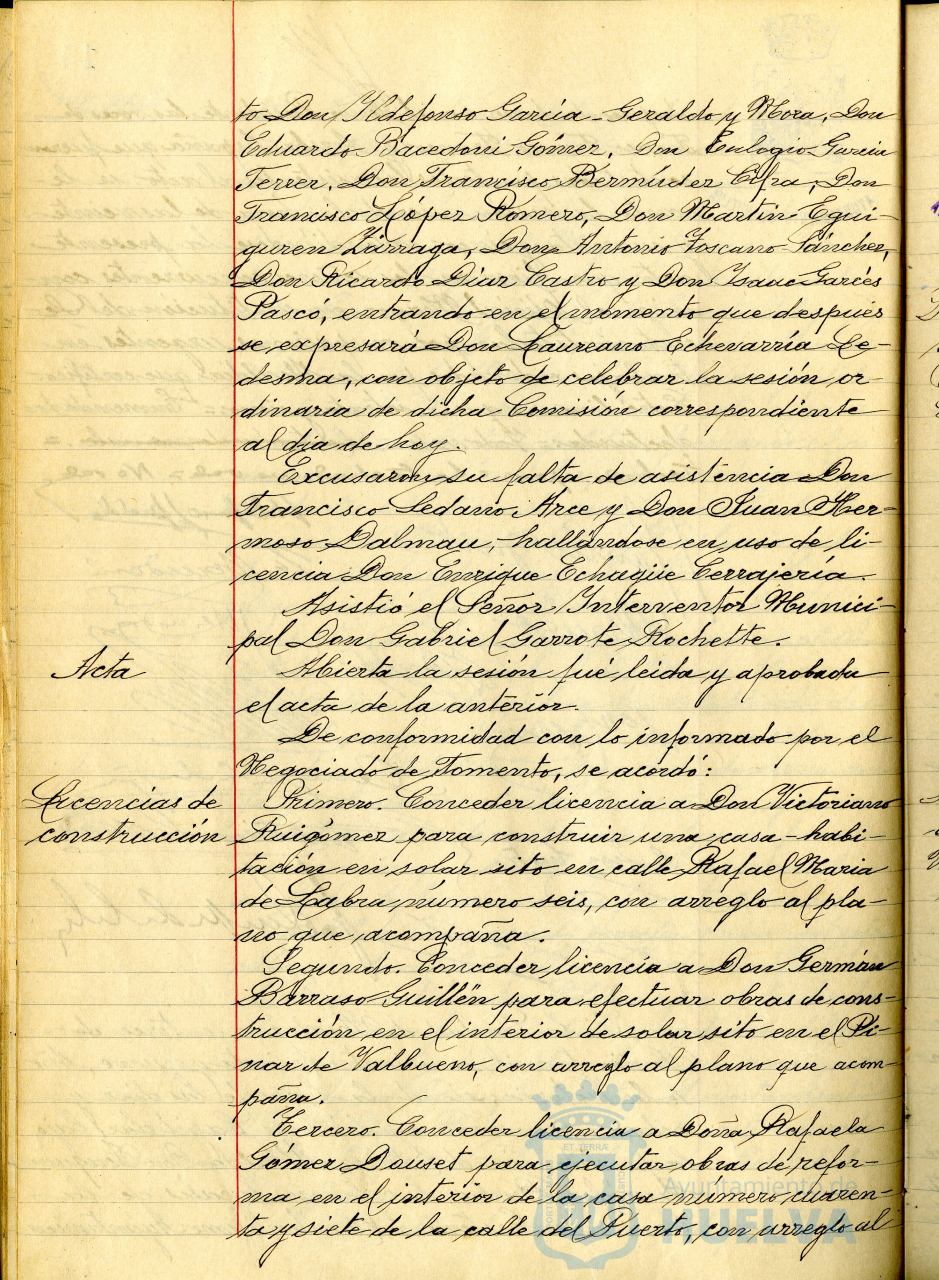 to Don Ildefonso García-Geraldo y Mora, Don
Eduardo Bacedoni Gómez, Don Eulogio Garcia
Ferrer, Don Francisco Bermúdez Cifra, Don
Francisco López Romero, Don Martin Egui-
guren Zárraga, Don Antonio Toscano Sánchez,
Don Ricardo Díaz Castro y Don Isaac Garcés
Pascó, entrando en el momento que después
se expresará Don Laureano Echevarría Le-
desma, con objeto de celebrar la sesión or-
dinaria de dicha Comisión correspondiente
al dia de hoy.
Excusaron su falta de asistencia Don
Francisco Sedano Arce y Don Juan Her-
moso Dalmau, hallándose en uso de li-
cencia Don Enrique Echagüe Cerrajería.
Asistió el Señor Interventor Munici-
pal Don Gabriel Garrote Rochette.
Acta
Abierta la sesión fué leida y aprobada
el acta de la anterior.
De conformidad con lo informado por el
Negociado de Fomento, se acordó:
Licencias de
construcción
Primero. Conceder licencia a Don Victoriano
Ruigómez para construir una casa-habi-
tación en solar sito en calle Rafael Maria
de Labra número seis, con arreglo al pla-
no que acompaña.
Segundo. Conceder licencia a Don Germán
Barraso Guillén para efectuar obras de cons-
trucción en el interior de solar sito en el Pi-
nar de Valbueno, con arreglo al plano que acom-
paña.
Tercero. Conceder licencia a Doña Rafaela
Gómez Douset para ejecutar obras de refor-
ma en el interior de la casa número cuaren-
ta y siete de la calle del Puerto, con arreglo al
Ayuntamiento de
HUELVA